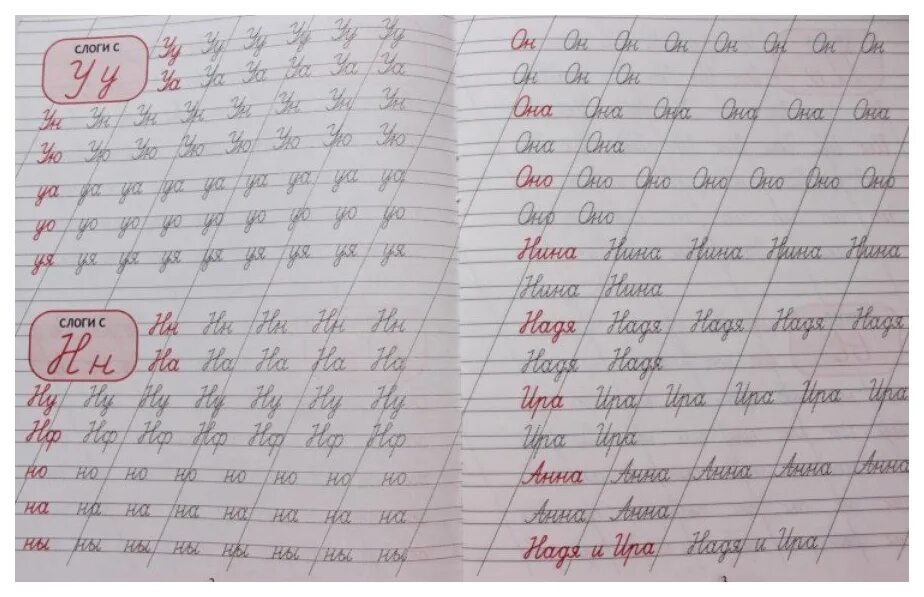 СЛОГИ С
Уу
Уу Уу Уу Уу Уу Уу
Уа Уа Уа Уа Уа Уа
Ун Ун Ун Ун Ун Ун Ун Ун
Ую Ую Ую Ую Ую Ую Ую Ую
уа уа уа уа уа уа уа уа уа
уо уо уо уо уо уо уо уо уо
уя уя уя уя уя уя уя уя уя
СЛОГИ С
Нн
Нн Нн Нн Нн Нн
На На На На На
Ну Ну Ну Ну Ну Ну Ну
Нф Нф Нф Нф Нф Нф Нф
но но но но но но но но
на на на на на на на на
ны ны ны ны ны ны ны ны
Он Он Он Он Он Он Он Он
Он Он Он
Она Она Она Она Она Она
Она Она
Оно Оно Оно Оно Оно Оно Оно
Оно Оно
Нина Нина Нина Нина Нина
Нина Нина
Надя Надя Надя Надя Надя
Надя Надя
Ира Ира Ира Ира Ира Ира
Ира Ира
Анна Анна Анна Анна Анна
Анна Анна
Надя и Ира Надя и Ира